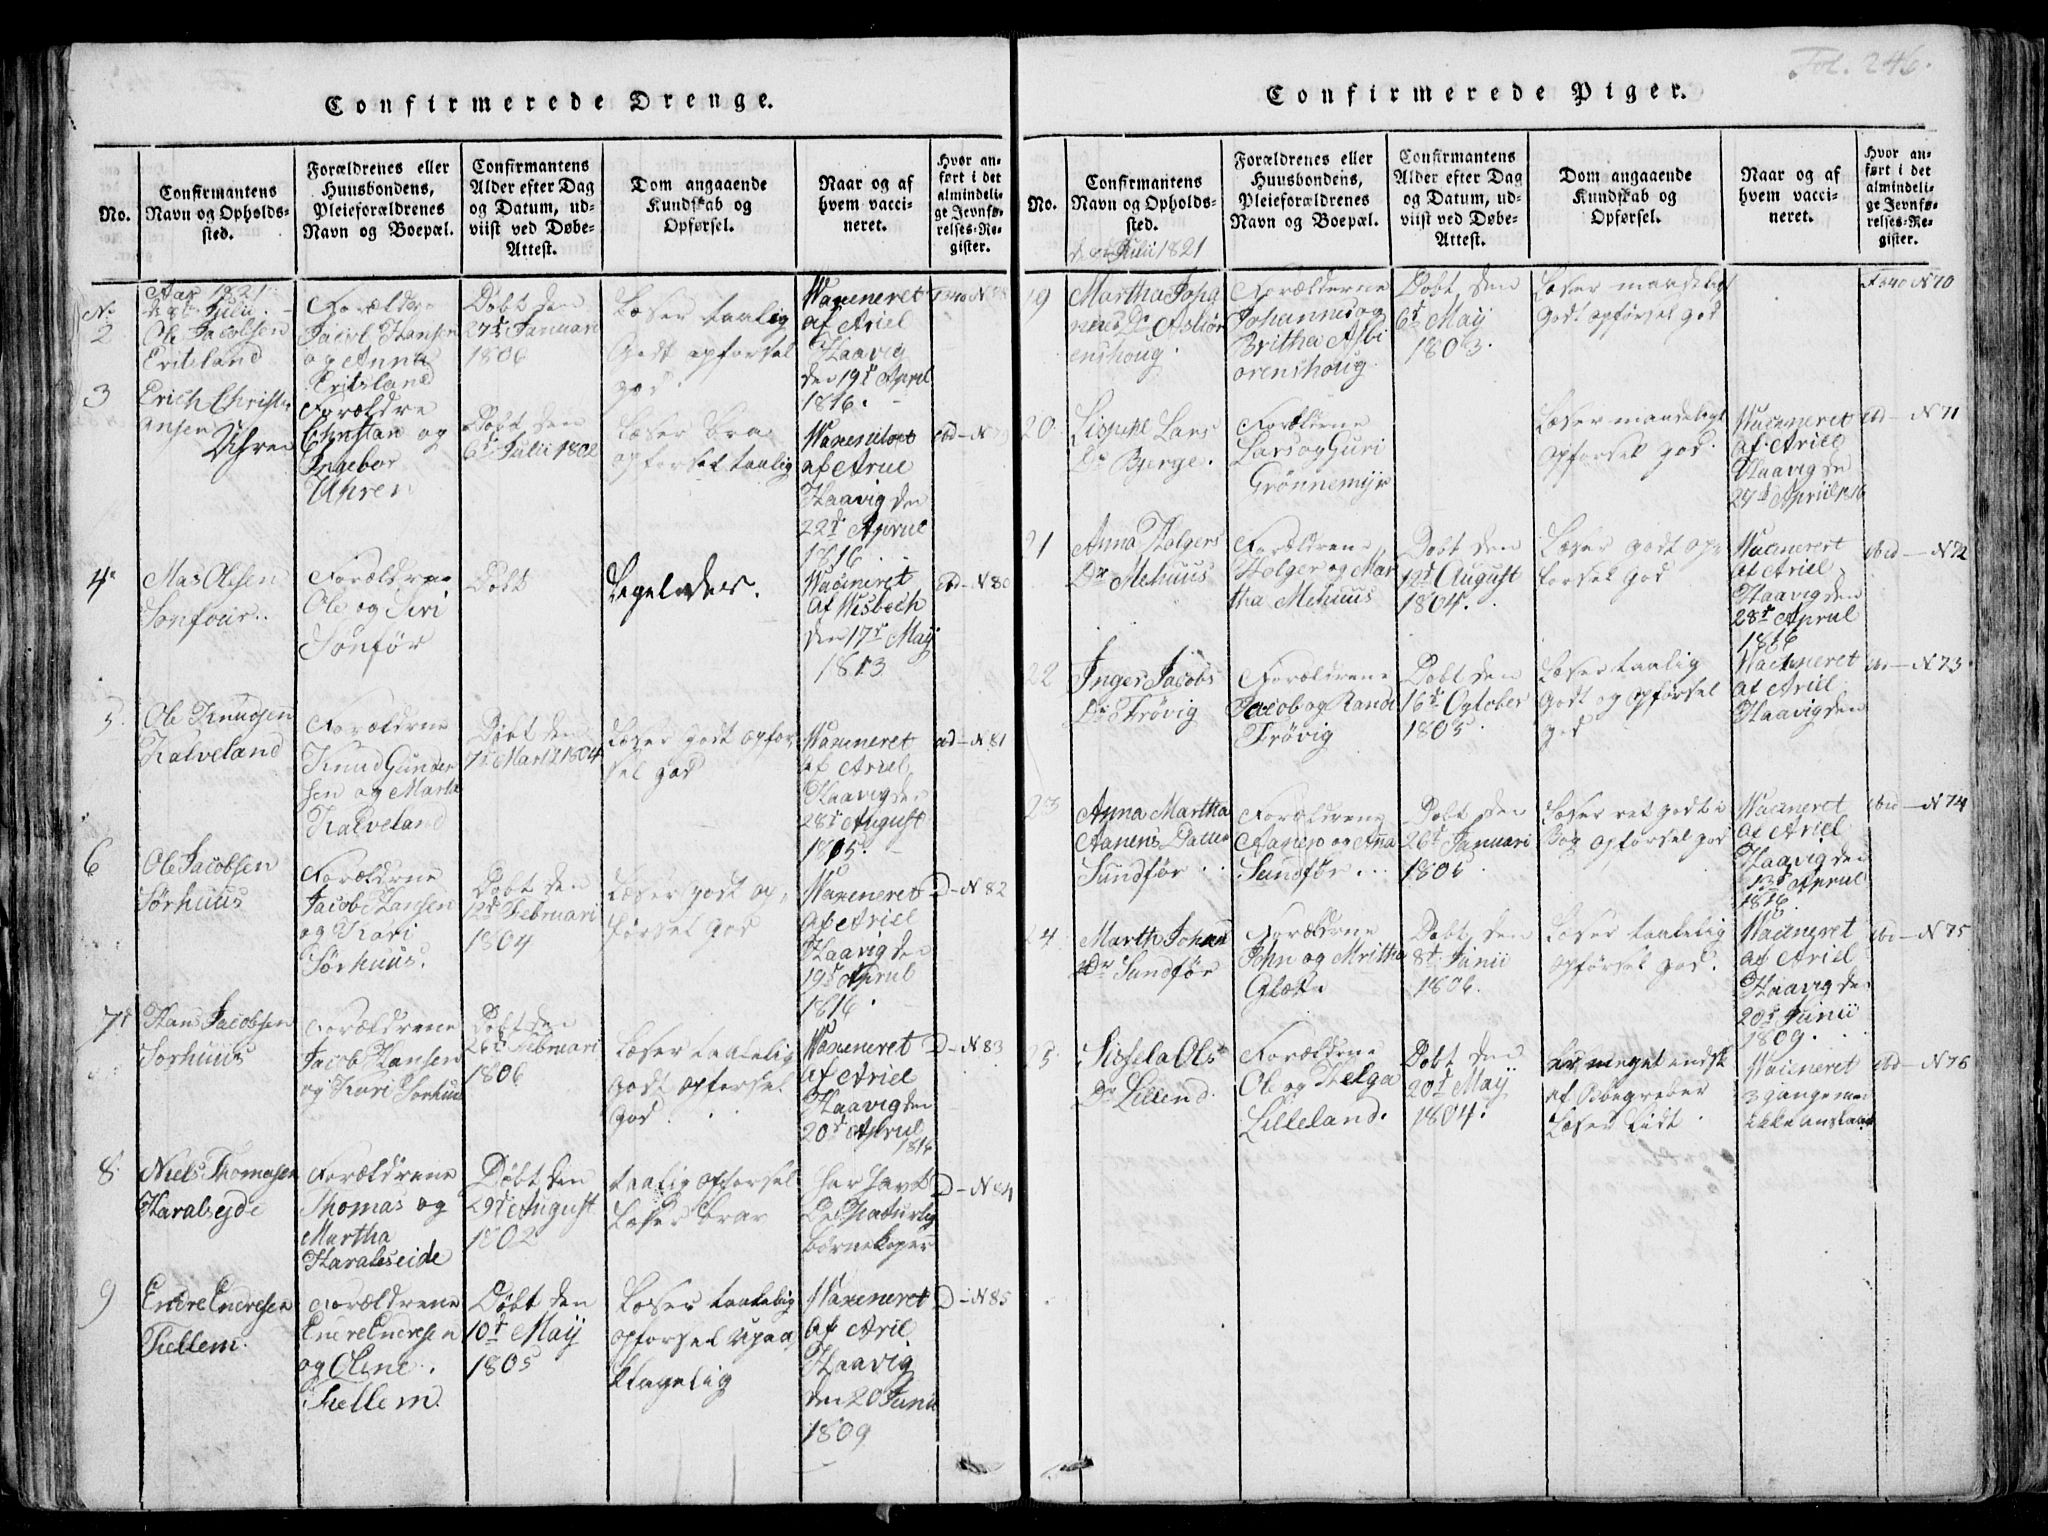 Fol. 246.
Confirmerede Drenge.
No.
Confirmantens
Navn og Opholds-
sted.
Forældrenes eller
Huusbondens,
Pleieforældrenes
Navn og Boepæl.
Confirmantens
Alder efter Dag
og Datum, ud-
viist ved Døbe-
Attest.
Dom angaaende
Kundskab og
Opførsel.
Naar og af
hvem vacci-
neret.
Hvor an-
ført i det
almindeli-
ge Jevnfø-
relses-Re-
gister.
Aar 1821
d 8de Julii
No
2
Ole Jacobsen
Eritsland
Forældre
Jacob Hansen
og Anna
Eritsland
Døbt den
27d Januari
1806
Læser taalig
Godt opførsel
god
Waxineret
af Ariel
Haavig
den 19d April
1816.
3
Erich Christi
ansen
Uhren
Forældre
Christan og
Ingebor
Uhren
Døbt den
6d Julii 1802
Læser bra
opførsel taalig
Waxineret
af Ariel
Haavig den
22d Aprul
1816
4
Mas Olesen
Sonfour
Forældre
Ole og Siri
Sønfør
Døbt
Legeledes.
Wacineret
af Wisbech
den 17d May
1813
ibd - N 80
5
Ole Knudsen
Kalveland
Forældrne
Knud Gunder
sen og Marta
Kalveland
Døbt den
7d Marti 1804
Læser godt opfør
sel god
Waxineret
af Ariel
Haavig den
28d August
1815.
ibd - N 81
6
Ole Jacobsen
Sørhuus
Forældrne
Jacob Hansen
og Kari
Sørhuus.
Døbt den
12d Februari
1804
Læser godt op-
førsel god
Waxineret
af Ariel
Haavig den
19d Aprul
1816
D - N 82
7d
Hans Jacobsen
Sorhuus
Forældrene
Jacob Hansen
og Kari Sorhuus
Døbt den
26d Februari
1806
Læser taalelig
godt opførsel
god
Waxeneret
af Ariel
Haavig den
20d Aprul
1816
D - N 83
8
Niels Thomasen
Haralseyde
Forældrene
Thomas og
Martha
Haralsseide
Døbt den
29d August
1802
taalig opførsel
Læser brav
har havt
De Naturlig
børnekoper
D - N 84
9
Endre Endresen
Tiellem
Forældrene
Endre Endresen
og Oline
Tiellem
Døbt den
10d May
1805
Læser taalelig
opførsel upaa
klagelig
Waxeneret
af Aril
Haavig
den 20 Junii
1809
D - N 85
Confirmerede Piger.
No.
Confirmantens
Navn og Opholds-
sted.
Forældrenes eller
Huusbondens,
Pleieforældrenes
Navn og Boepæl.
Confirmantens
Alder efter Dag
og Datum, ud-
viist ved Døbe-
Attest.
Dom angaaende
Kundskab og
Opførsel.
Naar og af
hvem vacci-
neret.
Hvor an-
ført i det
almindeli-
ge Jevnfø-
relses-Re-
gister.
Julii 1821
19
Martha Joha
nnes Dr Asbiør
enshoug
Forælderne
Johannes og
Britha Asbi
orenshoug
Døbt den
6d May
1803.
Læser maadelig
godt opførsel god
F 340 N 70
20
Lars
Dr Bjerge.
Forældrne
Lars og Guri
Grønnemyr
Læser maadeligt
opførsel god
Wacineret
af Ariel
Haavig de
27d Apriil 1816
ibd - N 71
21
Anna Holgers
Dr Mehuus
Forældrene
Holger og Mar
tha Mehuus
Døbt den
12d August
1804.
Læser godt op-
førsel god
Wacineret
af Ariel
Haavig den
28d Aprul
1816
ibd - N 72
22
Inger Jacobs
Dr Frøvig
Forældrene
Jacob og Randi
Frøvig
Døbt den
16d October
1805
Læser taalig
godt og opførsel
god
Wacineret
af Ariel
Haavig den
ibd - N 73
23
Anna Martha
Aanens Datter
Sundfør
Forældrene
Aanen og Ana
Sundfør
Døbt den
26d Januari
1806
Læser ret godt i
Bog opførsel god
Wacineret
af Ariel
Haavig den
13d Aprul
1816
ibd - N 74
24
Marth Johan
Dr Sundfør
Forældrne
John og Mritha
Døbt den
8d Junii
1806
Læser taalelig
opførsel god.
Wacineret
af Ariel
Haavig de
20d Junii
1809.
ibd - N 75
25
Sisela Ols
Dr Lilend
Forældrne
Ole og Helga
Lilleland.
Døbt den
20d May
1804.
er meget indsk
af Bbegreber
Læser lidt
Wacineret
3 gange men
ikke anslaaet
ibd - N 76